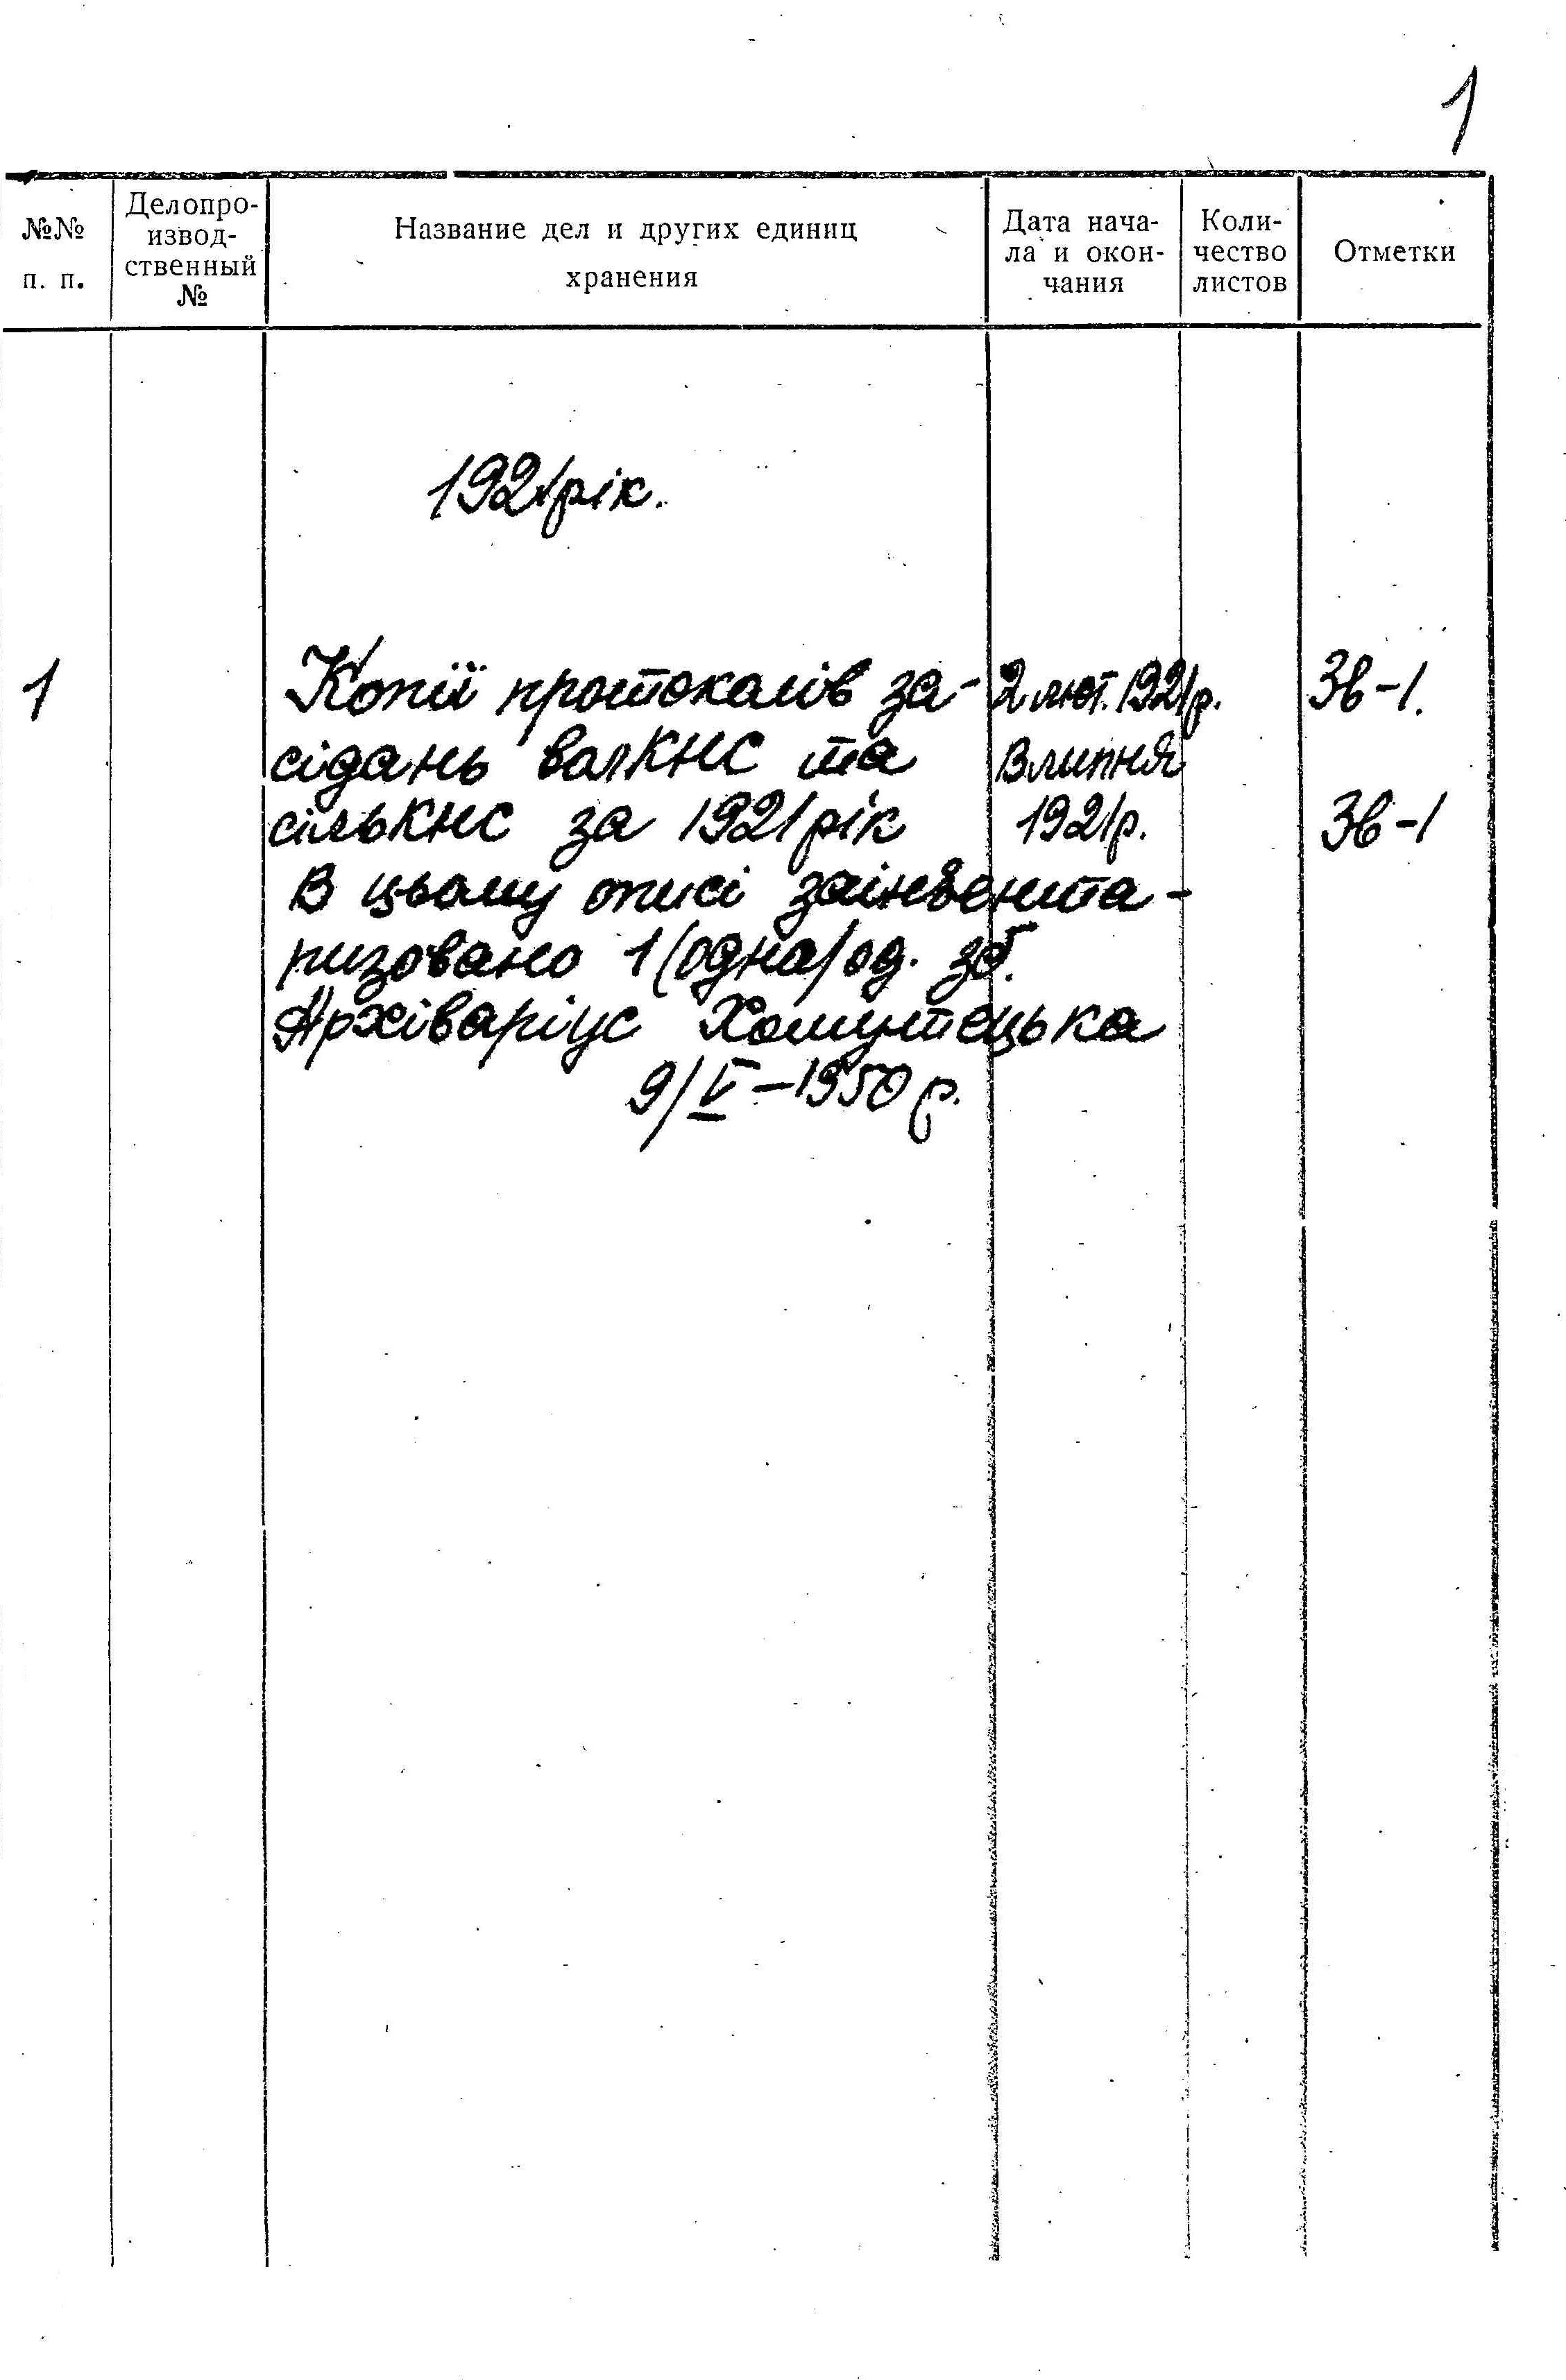 1
№№ п. п.
Делопро-
извод-
ственный
№
Название дел и других единиц
хранения
Дата нача-
ла и окон-
чания
Коли-
чество
листов
Отметки
1921 рік.
1 Копії протоколів за- 2 лют. 1921 р. Зв-1.
сідань волКНС та липня
сільКНС за 1921 рік 1921 р. Зв-1
В цьому описі заінвента-
ризовано 1 (одна) од. зб.
Архіваріус Хомутецька
9/V-1950 р.